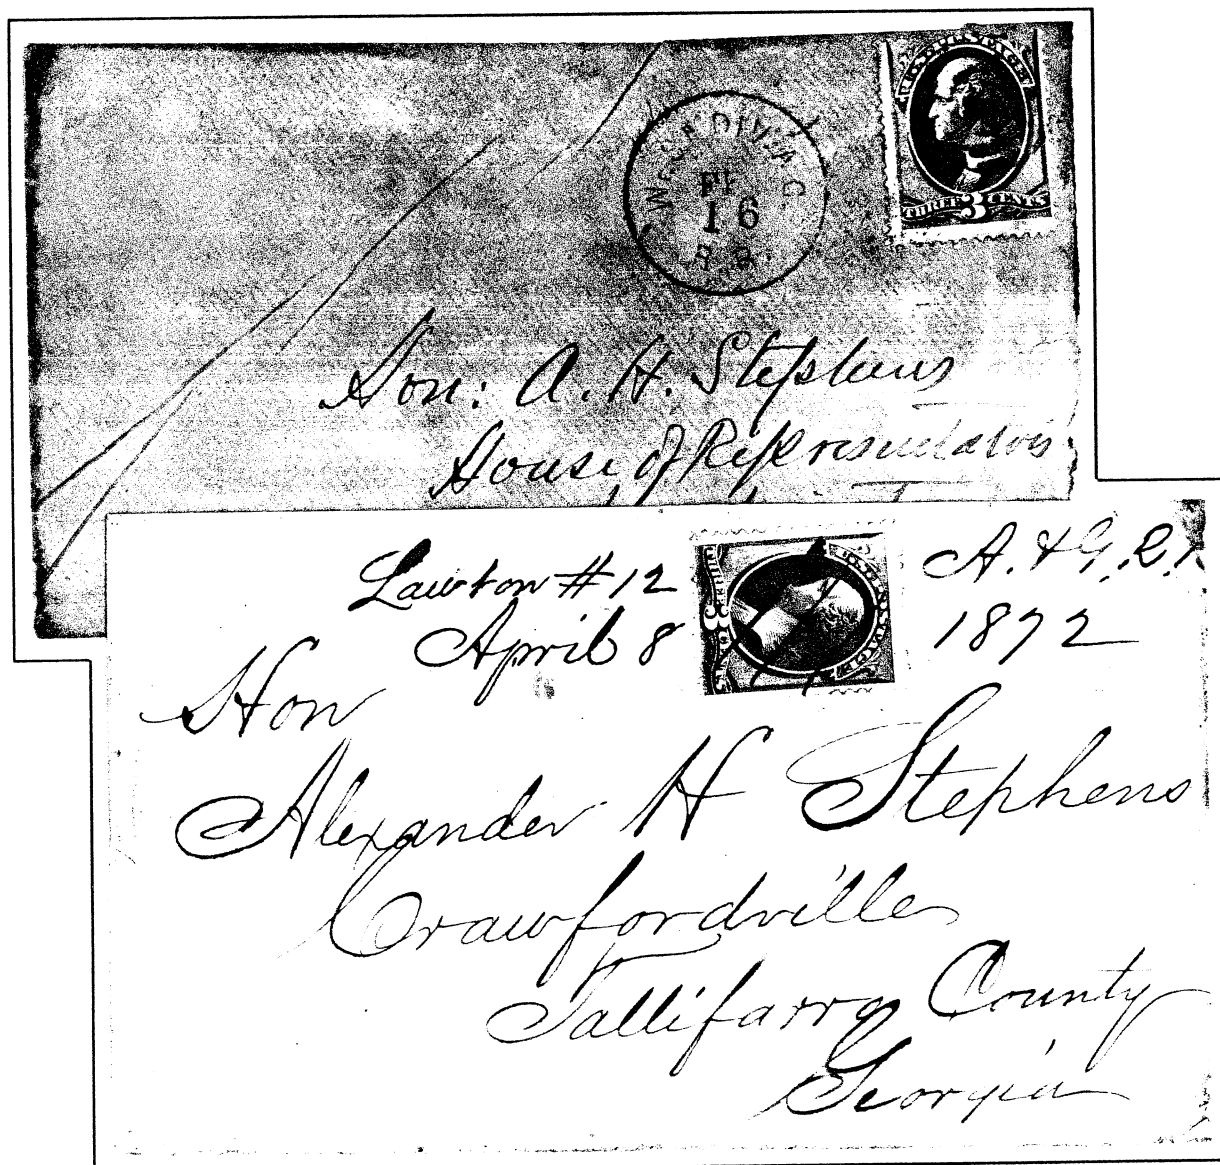 U.S. POSTAGE
THREE 3 CENTS
16
R.R.
Hon: A. H. Stephens
House of Representatives
Lawton #12
A. & G. R. R.
April 8
1872
Hon
Alexander H Stephens
Crawfordville
Tallifarro County
Georgia